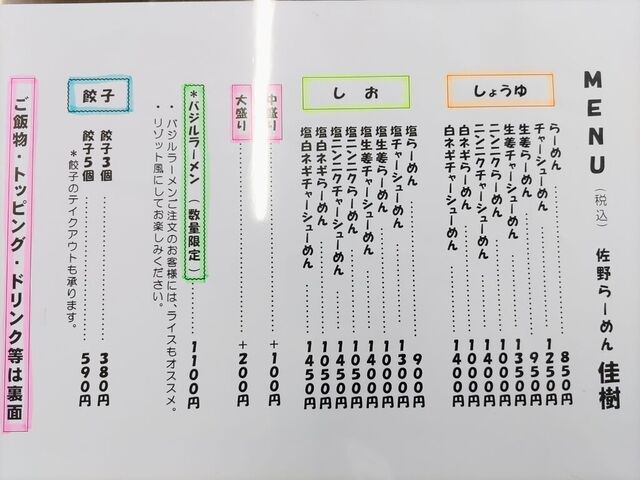 MENU(税込) 佐野らーめん 佳樹
しょうゆ
らーめん……850円
チャーシューめん……1250円
生姜らーめん……950円
生姜チャーシューめん……1350円
ニンニクらーめん……1000円
ニンニクチャーシューめん……1400円
白ネギらーめん……1000円
白ネギチャーシューめん……1400円
しお
塩らーめん……900円
塩チャーシューめん……1300円
塩生姜らーめん……1000円
塩生姜チャーシューめん……1400円
塩ニンニクらーめん……1050円
塩ニンニクチャーシューめん……1450円
塩白ネギらーめん……1050円
塩白ネギチャーシューめん……1450円
中盛り……+100円
大盛り……+200円
*バジルラーメン(数量限定)……1100円
・バジルラーメンご注文のお客様には、ライスもオススメ。
・リゾット風にしてお楽しみください。
餃子
餃子3個……380円
餃子5個……590円
*餃子のテイクアウトも承ります。
ご飯物・トッピング・ドリンク等は裏面